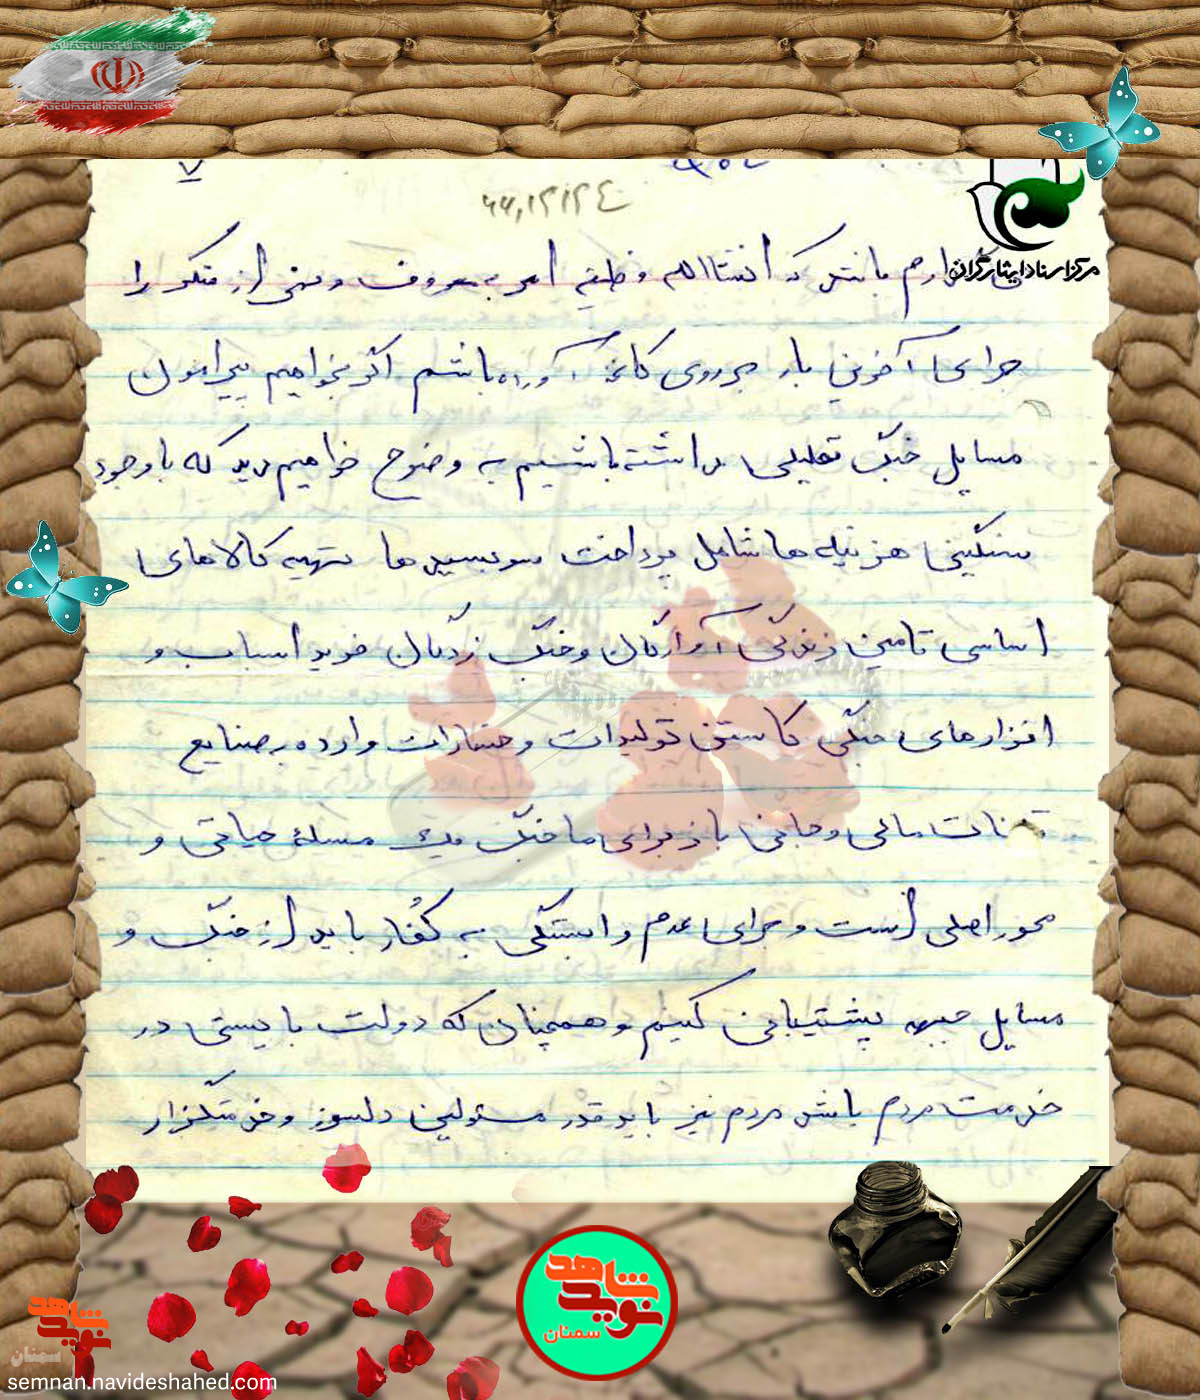 ۷
مرکز اسناد ایثارگران
باشد که انشاالله وظیفه امر به معروف و نهی از منکر را
برای آخرین بار بر روی کاغذ آورده باشم اگر بخواهیم پیرامون
مسایل جنگ تحلیلی داشته باشیم به وضوح خواهیم دید که با وجود
سنگینی هزینه ها شامل پرداخت سوبسیدها تهیه کالاهای
اساسی تامین زندگی آوارگان و جنگ زدگان خرید اسباب و
افزارهای جنگی کاستن تولیدات و خسارات وارده به صنایع
مالی و جانی باز برای ما جنگ یک مسلۀ حیاتی و
محور اصلی است و برای عدم وابستگی به کُفار باید از جنگ و
مسایل جبهه پشتیبانی کنیم و همچنان که دولت بایستی در
خدمت مردم باشد مردم نیز باید قدر مسئولین دلسوز و خدمتگزار
نوید شاهد
سمنان
نوید شاهد
سمنان
semnan.navideshahed.com